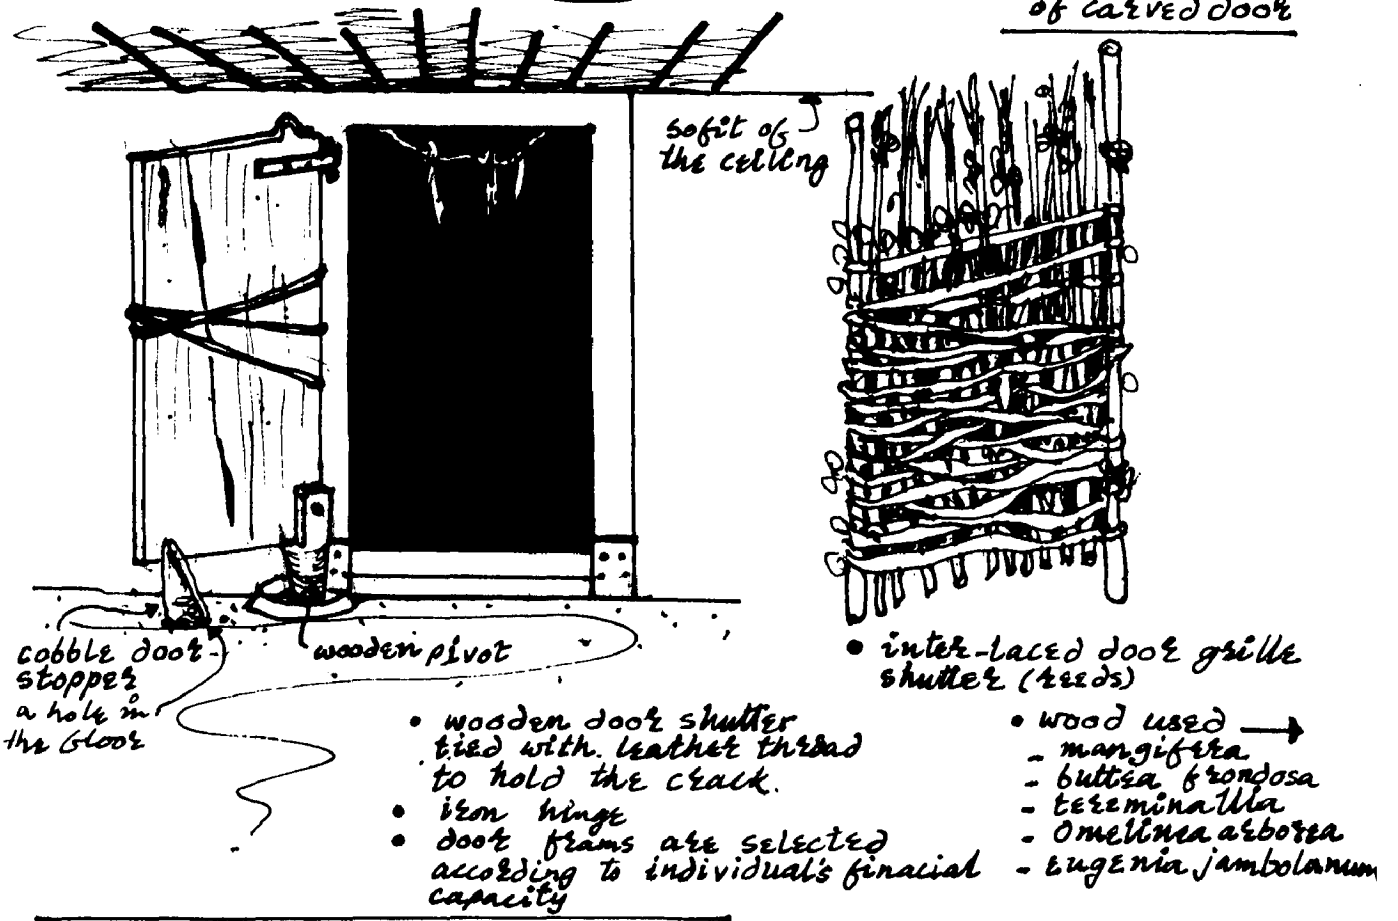 of carved door
sofit of
the ceiling
cobble door-
stopper
a hole in
the floor
wooden pivot
• inter-laced door grille
shutter (reeds)
• wooden door shutter
tied with leather thread
to hold the crack.
• iron hinge
• door frams are selected
according to individual's finacial
capacity
• wood used →
- mangifera
- buttea frondosa
- tereminallia
- Omelinea arborea
- eugenia jambolanum